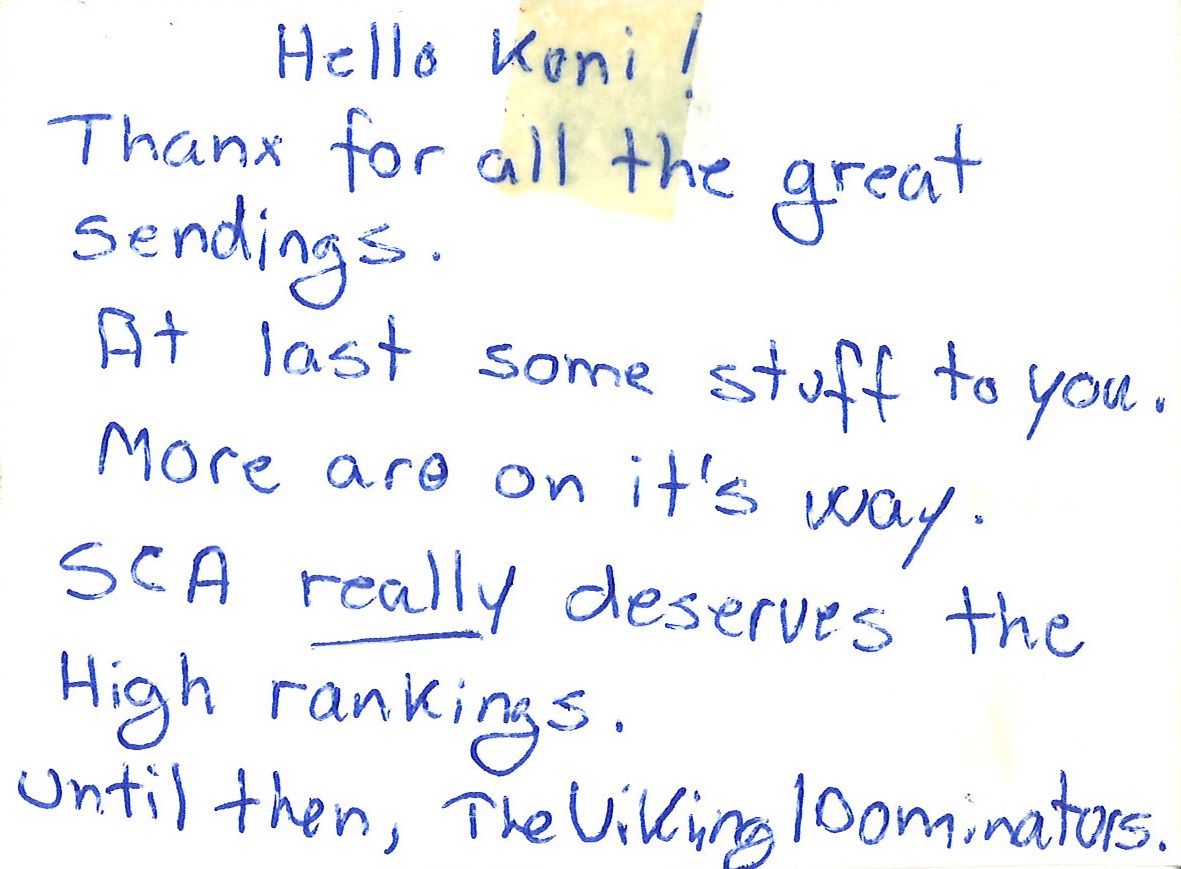 Hello Koni!
Thanx for all the great
sendings.
At last some stuff to you.
More are on it's way.
SCA really deserves the
High rankings.
Until then, The Viking / Dominators.